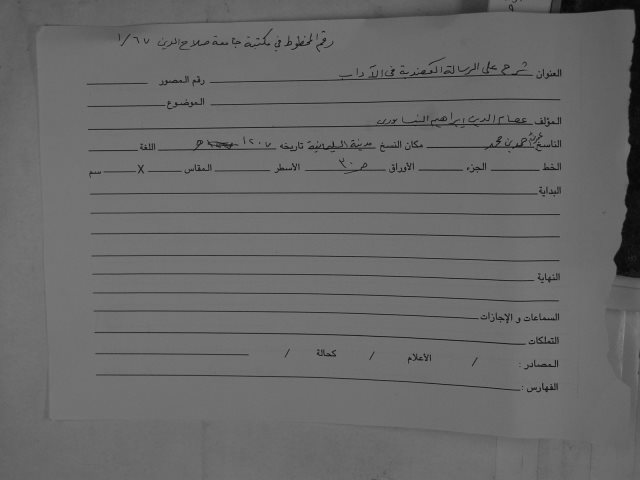 رقم المخطوط في مكتبة جامعة صلاح الدين ١/٦٧
العنوان شرح على الرسالة العضدية في الآداب
رقم المصور
الموضوع
المؤلف عصام الدين إبراهيم النيسابوري
الناسخ أحمد بن محمد مكان النسخ مدينة السليمانية تاريخه ١٢٠٧ هـ اللغة
الخط الجزء الأوراق ٣٠ ص الأسطر المقاس X سم
البداية
النهاية
السماعات و الإجازات
التملكات
المصادر : / الأعلام / كحالة /
الفهارس :